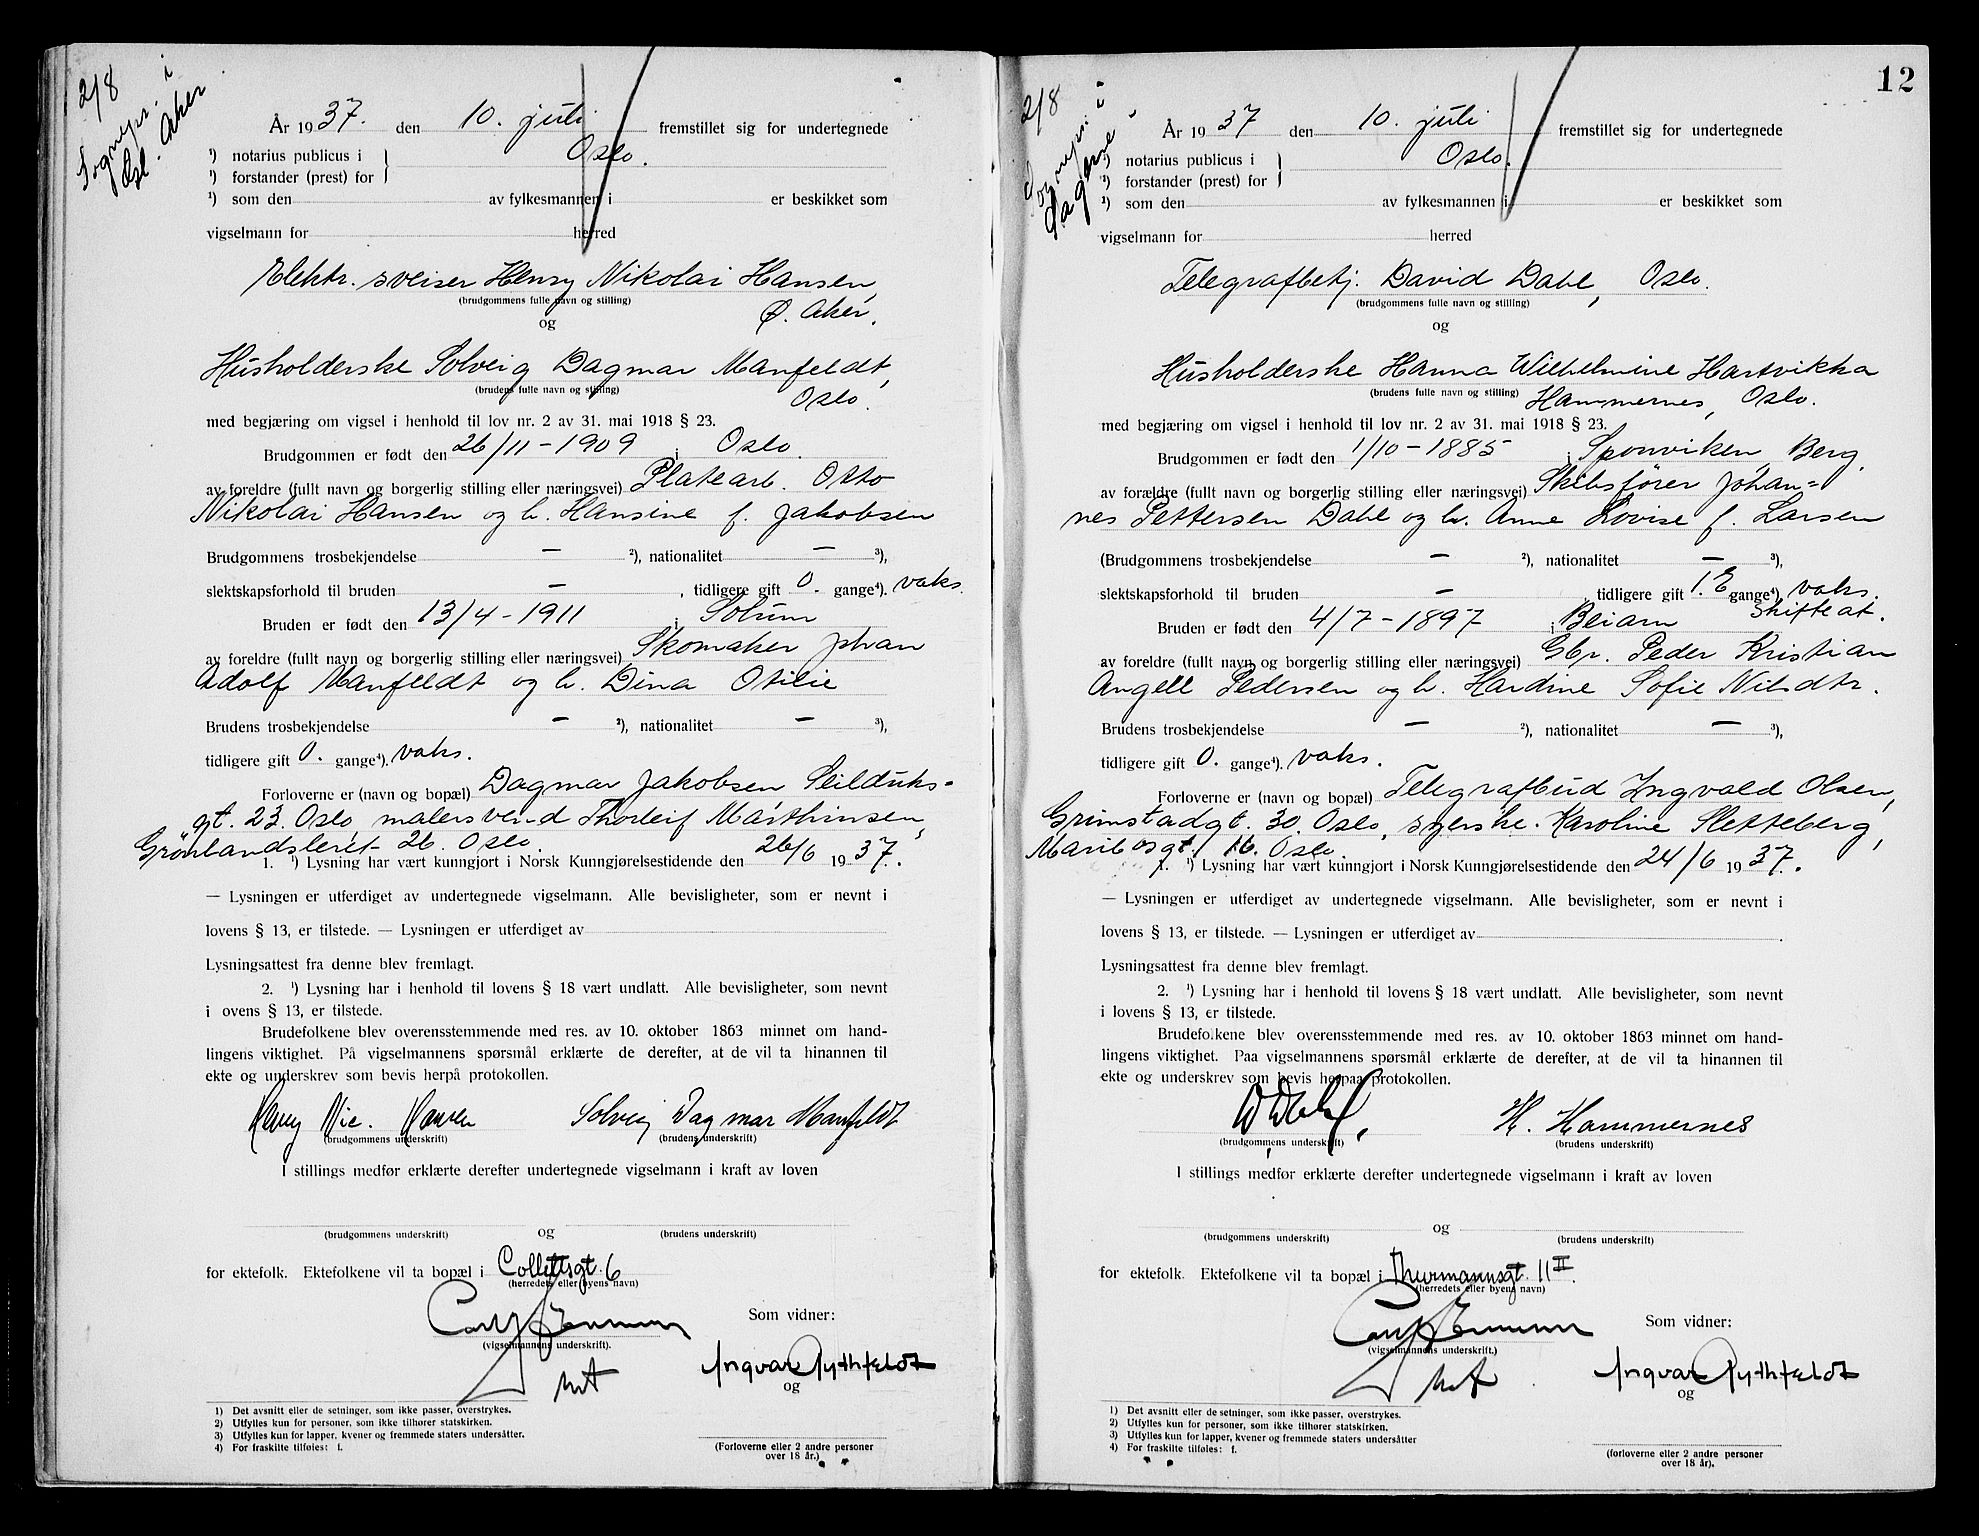 2/8
Sognepr. i
Østl. Aker
År 1937. den 10. juli fremstillet sig for undertegnede
¹) notarius publicus i Oslo.
¹) forstander (prest) for
¹) som den av fylkesmannen i er beskikket som
vigselmann for herred
Elektr. sveiser Henry Nikolai Hansen,
(brudgommens fulle navn og stilling)
Ø. Aker.
og
Husholderske Solveig Dagmar Manfeldt,
(brudens fulle navn og stilling)
Oslo.
med begjæring om vigsel i henhold til lov nr. 2 av 31. mai 1918 § 23.
Brudgommen er født den 26/11-1909 i Oslo.
av foreldre (fullt navn og borgerlig stilling eller næringsvei) Platearb. Otto
Nikolai Hansen og h. Hansine f. Jakobsen
Brudgommens trosbekjendelse — ²), nationalitet — ³),
slektskapsforhold til bruden — , tidligere gift 0. gange⁴). vaks.
Bruden er født den 13/4-1911 i Solum
av foreldre (fullt navn og borgerlig stilling eller næringsvei) Skomaker Johan
Adolf Manfeldt og h. Dina Otilie
Brudens trosbekjendelse — ²), nationalitet — ³),
tidligere gift 0. gange⁴). vaks.
Forloverne er (navn og bopæl) Dagmar Jakobsen Seilduks-
gt. 23. Oslo, malersvend Thorleif Marthinsen,
Grønlandsleret 26. Oslo.
1. ¹) Lysning har vært kunngjort i Norsk Kunngjørelsestidende den 26/6 1937.
— Lysningen er utferdiget av undertegnede vigselmann. Alle bevisligheter, som er nevnt i
lovens § 13, er tilstede. — Lysningen er utferdiget av
Lysningsattest fra denne blev fremlagt.
2. ¹) Lysning har i henhold til lovens § 18 vært undlatt. Alle bevisligheter, som nevnt
i ovens § 13, er tilstede.
Brudefolkene blev overensstemmende med res. av 10. oktober 1863 minnet om hand-
lingens viktighet. På vigselmannens spørsmål erklærte de derefter, at de vil ta hinannen til
ekte og underskrev som bevis herpå protokollen.
Henry Nic. Hansen Solveig Dagmar Manfeldt
(brudgommens underskrift) (brudens underskrift)
I stillings medfør erklærte derefter undertegnede vigselmann i kraft av loven
og
(brudgommens underskrift) (brudens underskrift)
for ektefolk. Ektefolkene vil ta bopæl i Collettsgt. 6
(herredets eller byens navn)
Som vidner:
(vigselmannens underskrift).
Ingvar Rythfeldt
og
1) Det avsnitt eller de setninger, som ikke passer, overstrykes.
2) Utfylles kun for personer, som ikke tilhører statskirken.
3) Utfylles kun for lapper, kvener og fremmede staters undersåtter.
4) For fraskilte tilføies: f.
(Forloverne eller 2 andre personer
over 18 år.)
12
2/8
Sognepr. i
År 1937 den 10. juli fremstillet sig for undertegnede
¹) notarius publicus i Oslo.
¹) forstander (prest) for
¹) som den av fylkesmannen i er beskikket som
vigselmann for herred
Telegrafbetj. David Dahl, Oslo.
(brudgommens fulle navn og stilling)
og
Husholderske Hanna Wilhelmine Hartvikka
(brudens fulle navn og stilling) Hammernes, Oslo.
med begjæring om vigsel i henhold til lov nr. 2 av 31. mai 1918 § 23.
Brudgommen er født den 1/10-1885 i Sponviken, Berg,
av forældre (fullt navn og borgerlig stilling eller næringsvei) Skibsfører Johan=
nes Pettersen Dahl og h. Anne Lovise f. Larsen
(Brudgommens trosbekjendelse — ²), nationalitet — ³),
slektskapsforhold til bruden — , tidligere gift 1. E gange⁴) vaks.
skifteat.
Bruden er født den 4/7-1897 i Beiarn
av foreldre (fullt navn og borgerlig stilling eller næringsvei) Gbr. Peder Kristian
Angell Pedersen og h. Hardine Sofie Nilsdtr.
Brudens trosbekjendelse — ²), nationalitet — ³),
tidligere gift 0. gange⁴). vaks.
Forloverne er (navn og bopæl) Telegrafbud Ingvald Olsen,
Grimstadgt. 30. Oslo, syerske Karoline Sletteberg,
Maribosgt. 16. Oslo.
1. ¹) Lysning har vært kunngjort i Norsk Kunngjørelsestidende den 24/6 1937.
— Lysningen er utferdiget av undertegnede vigselmann. Alle bevisligheter, som er nevnt i
lovens § 13, er tilstede. — Lysningen er utferdiget av
Lysningsattest fra denne blev fremlagt.
2. ¹) Lysning har i henhold til lovens § 18 vært undlatt. Alle bevisligheter, som nevnt
i lovens § 13, er tilstede.
Brudefolkene blev overensstemmende med res. av 10. oktober 1863 minnet om hand-
lingens viktighet. Paa vigselmannens spørsmål erklærte de derefter, at de vil ta hinannen til
ekte og underskrev som bevis herpaa protokollen.
D. Dahl. H. Hammernes
(brudgommens underskrift) (brudens underskrift)
I stillings medfør erklærte derefter undertegnede vigselmann i kraft av loven
og
(brudgommens underskrift) (brudens underskrift)
for ektefolk. Ektefolkene vil ta bopæl i Thurmannsgt. 11 II.
(herredets eller byens navn)
Som vidner:
(vigselmannens underskrift.)
Ingvar Rythfeldt
og
1) Det avsnitt eller de setninger, som ikke passer, overstrykes.
2) Utfylles kun for personer, som ikke tilhører statskirken.
3) Utfylles kun for lapper, kvener og fremmede staters undersåtter
4) For fraskilte tilføies: f.
(forloverne eller 2 andre personer
over 18 år).